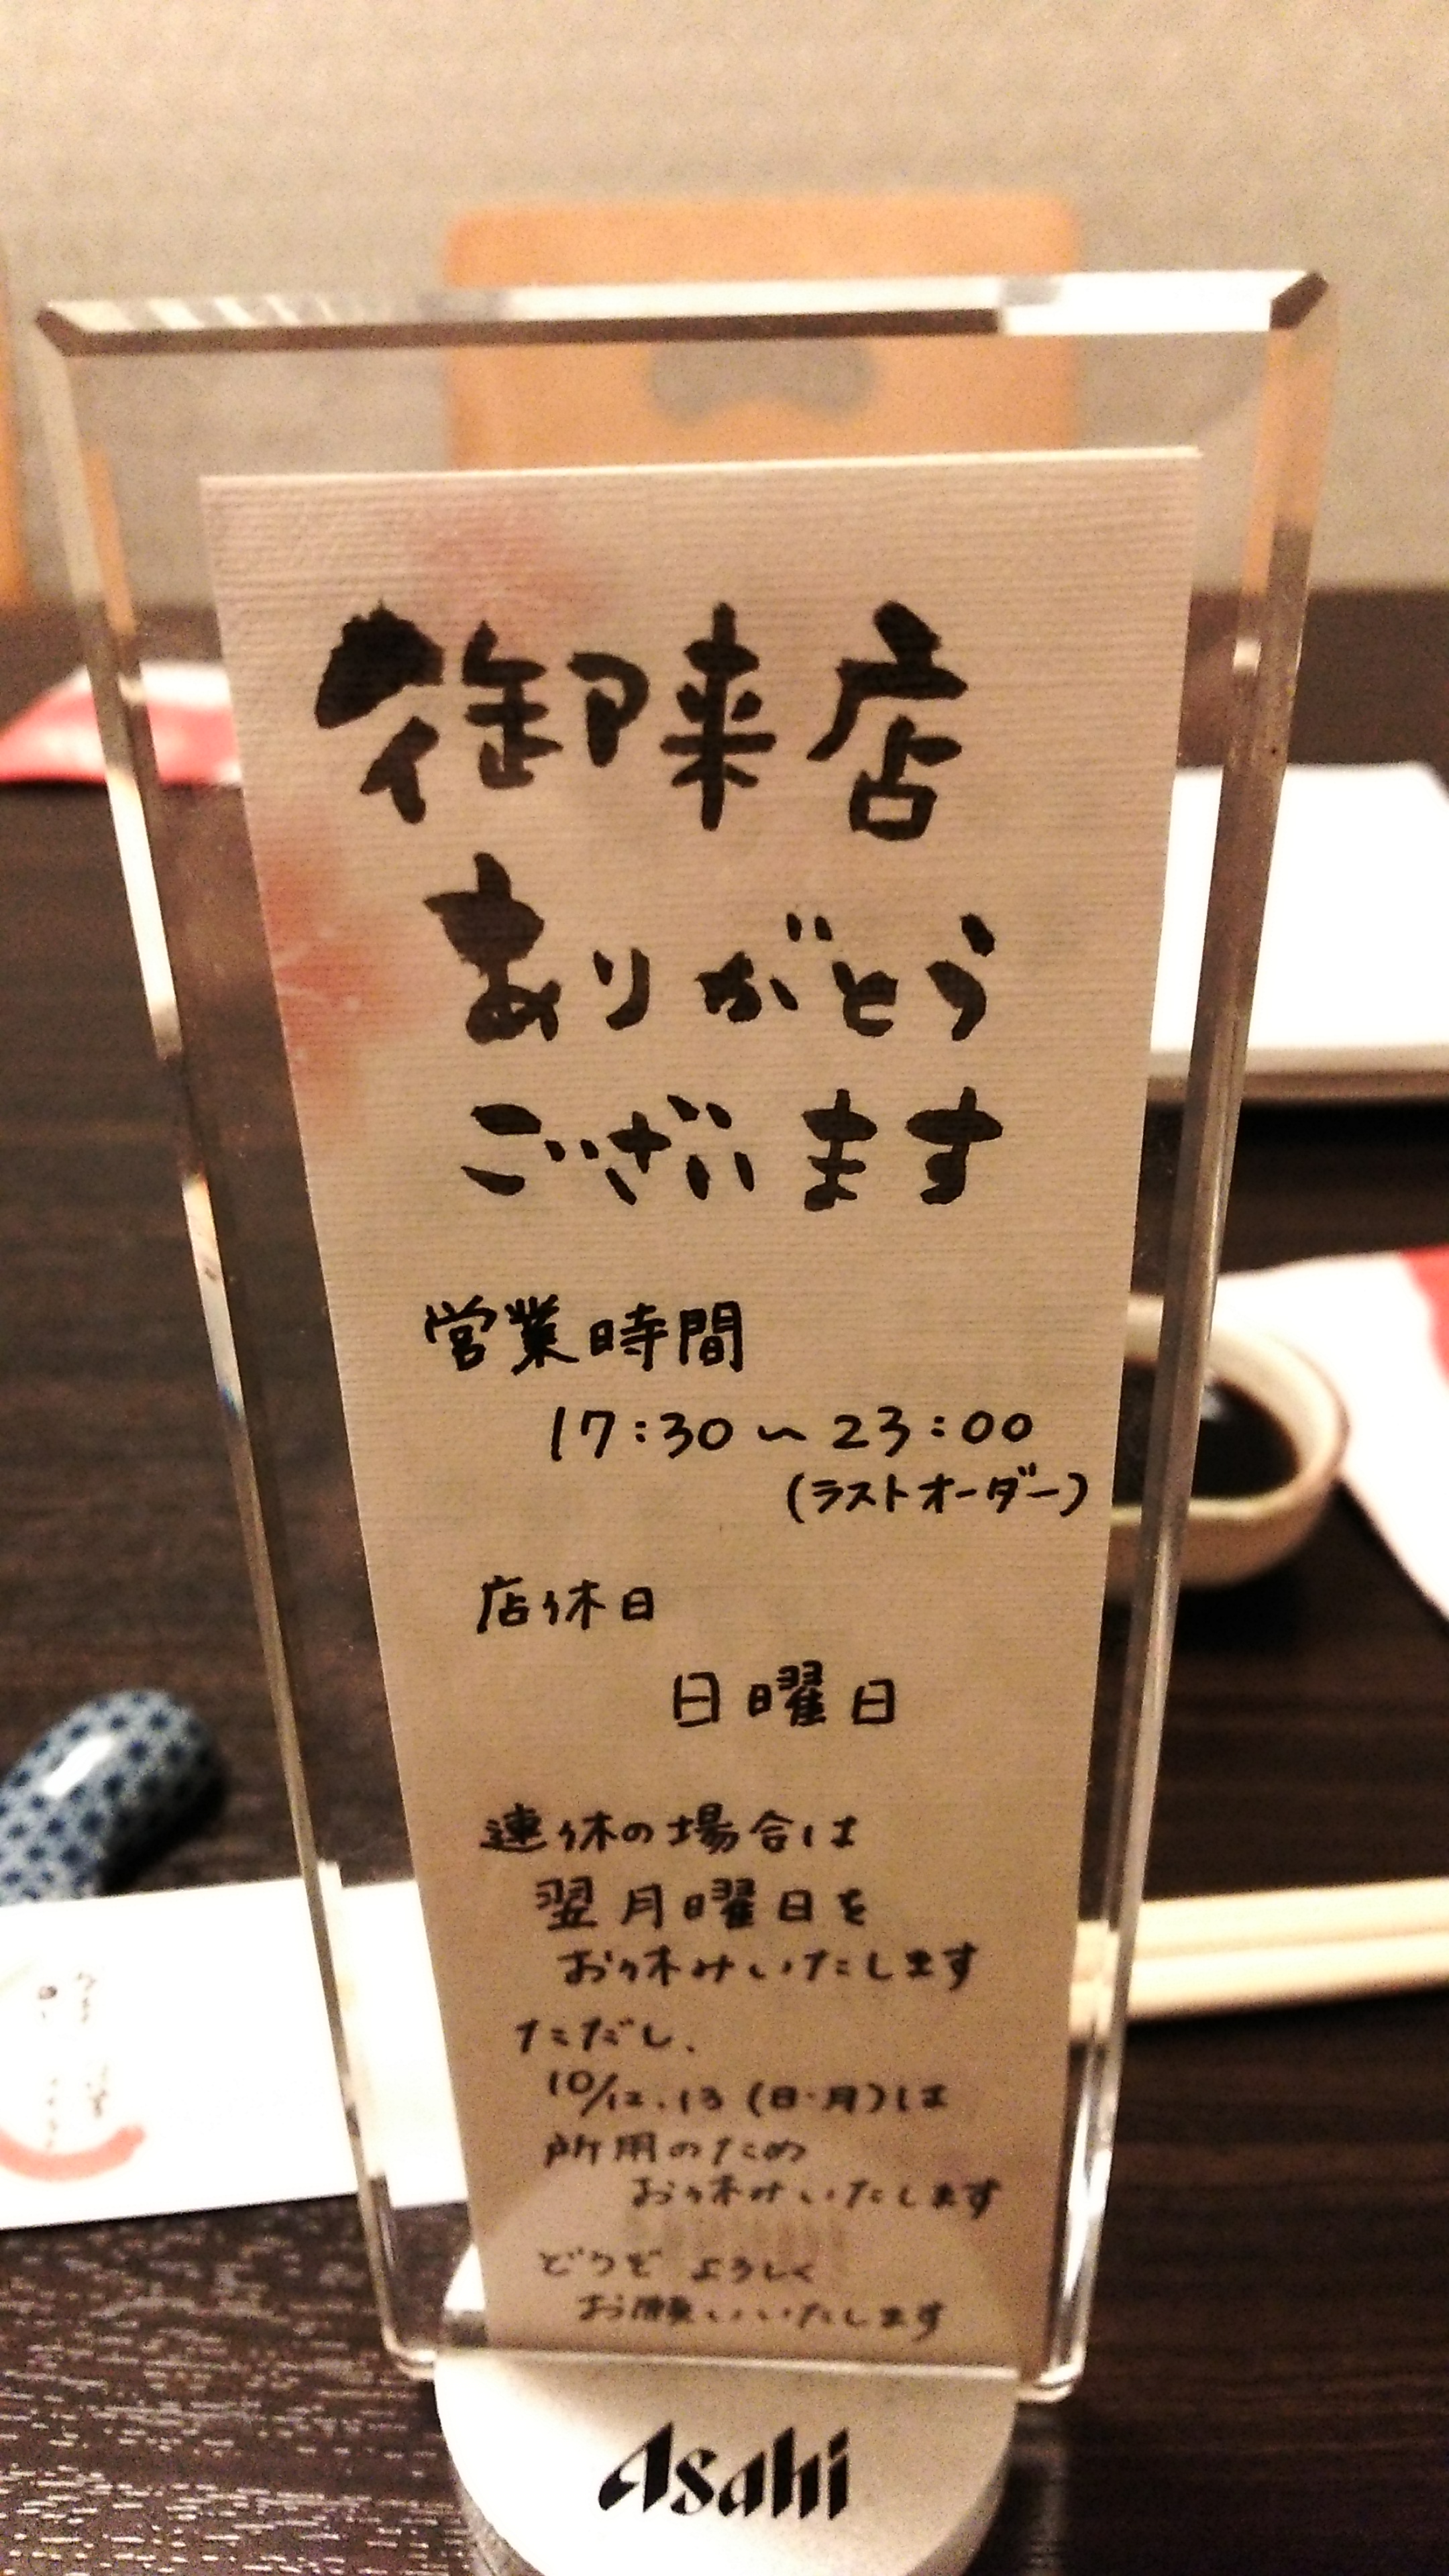 御来店
ありがとう
ございます
営業時間
17:30～23:00
(ラストオーダー)
店休日
日曜日
連休の場合は
翌月曜日を
お休みいたします
ただし、
10/12.13(日・月)は
所用のため
お休みいたします
どうぞ よろしく
お願いいたします
Asahi